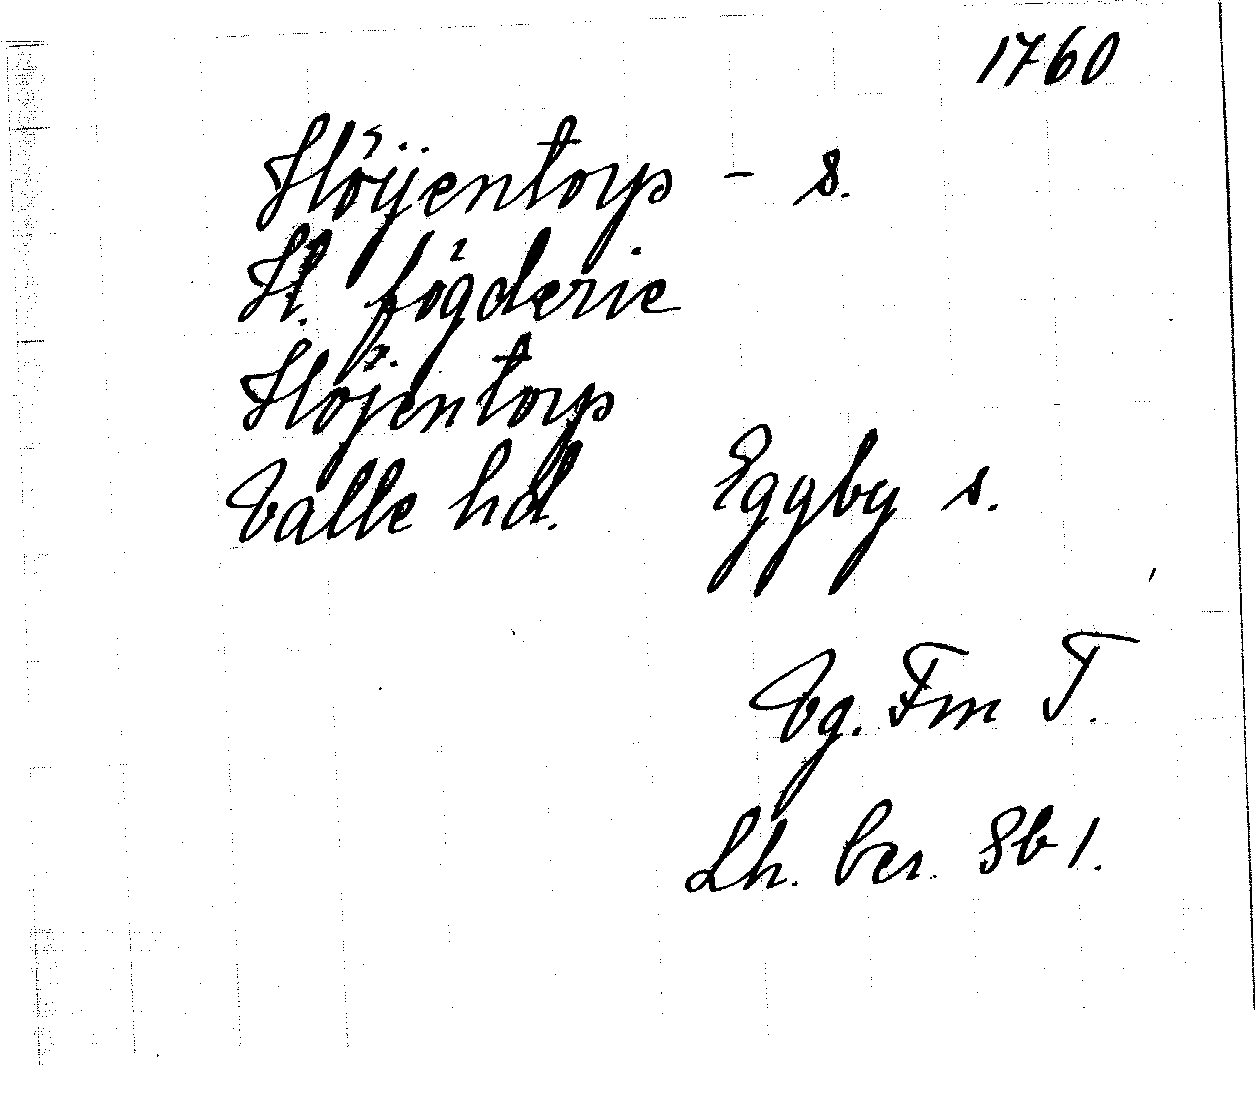 1760
Höÿentorp - s.
H. fögderie
Höjentorp
Valle hd. Eggby s.
Vg. Fm T.
Lh. ber. Sb 1.